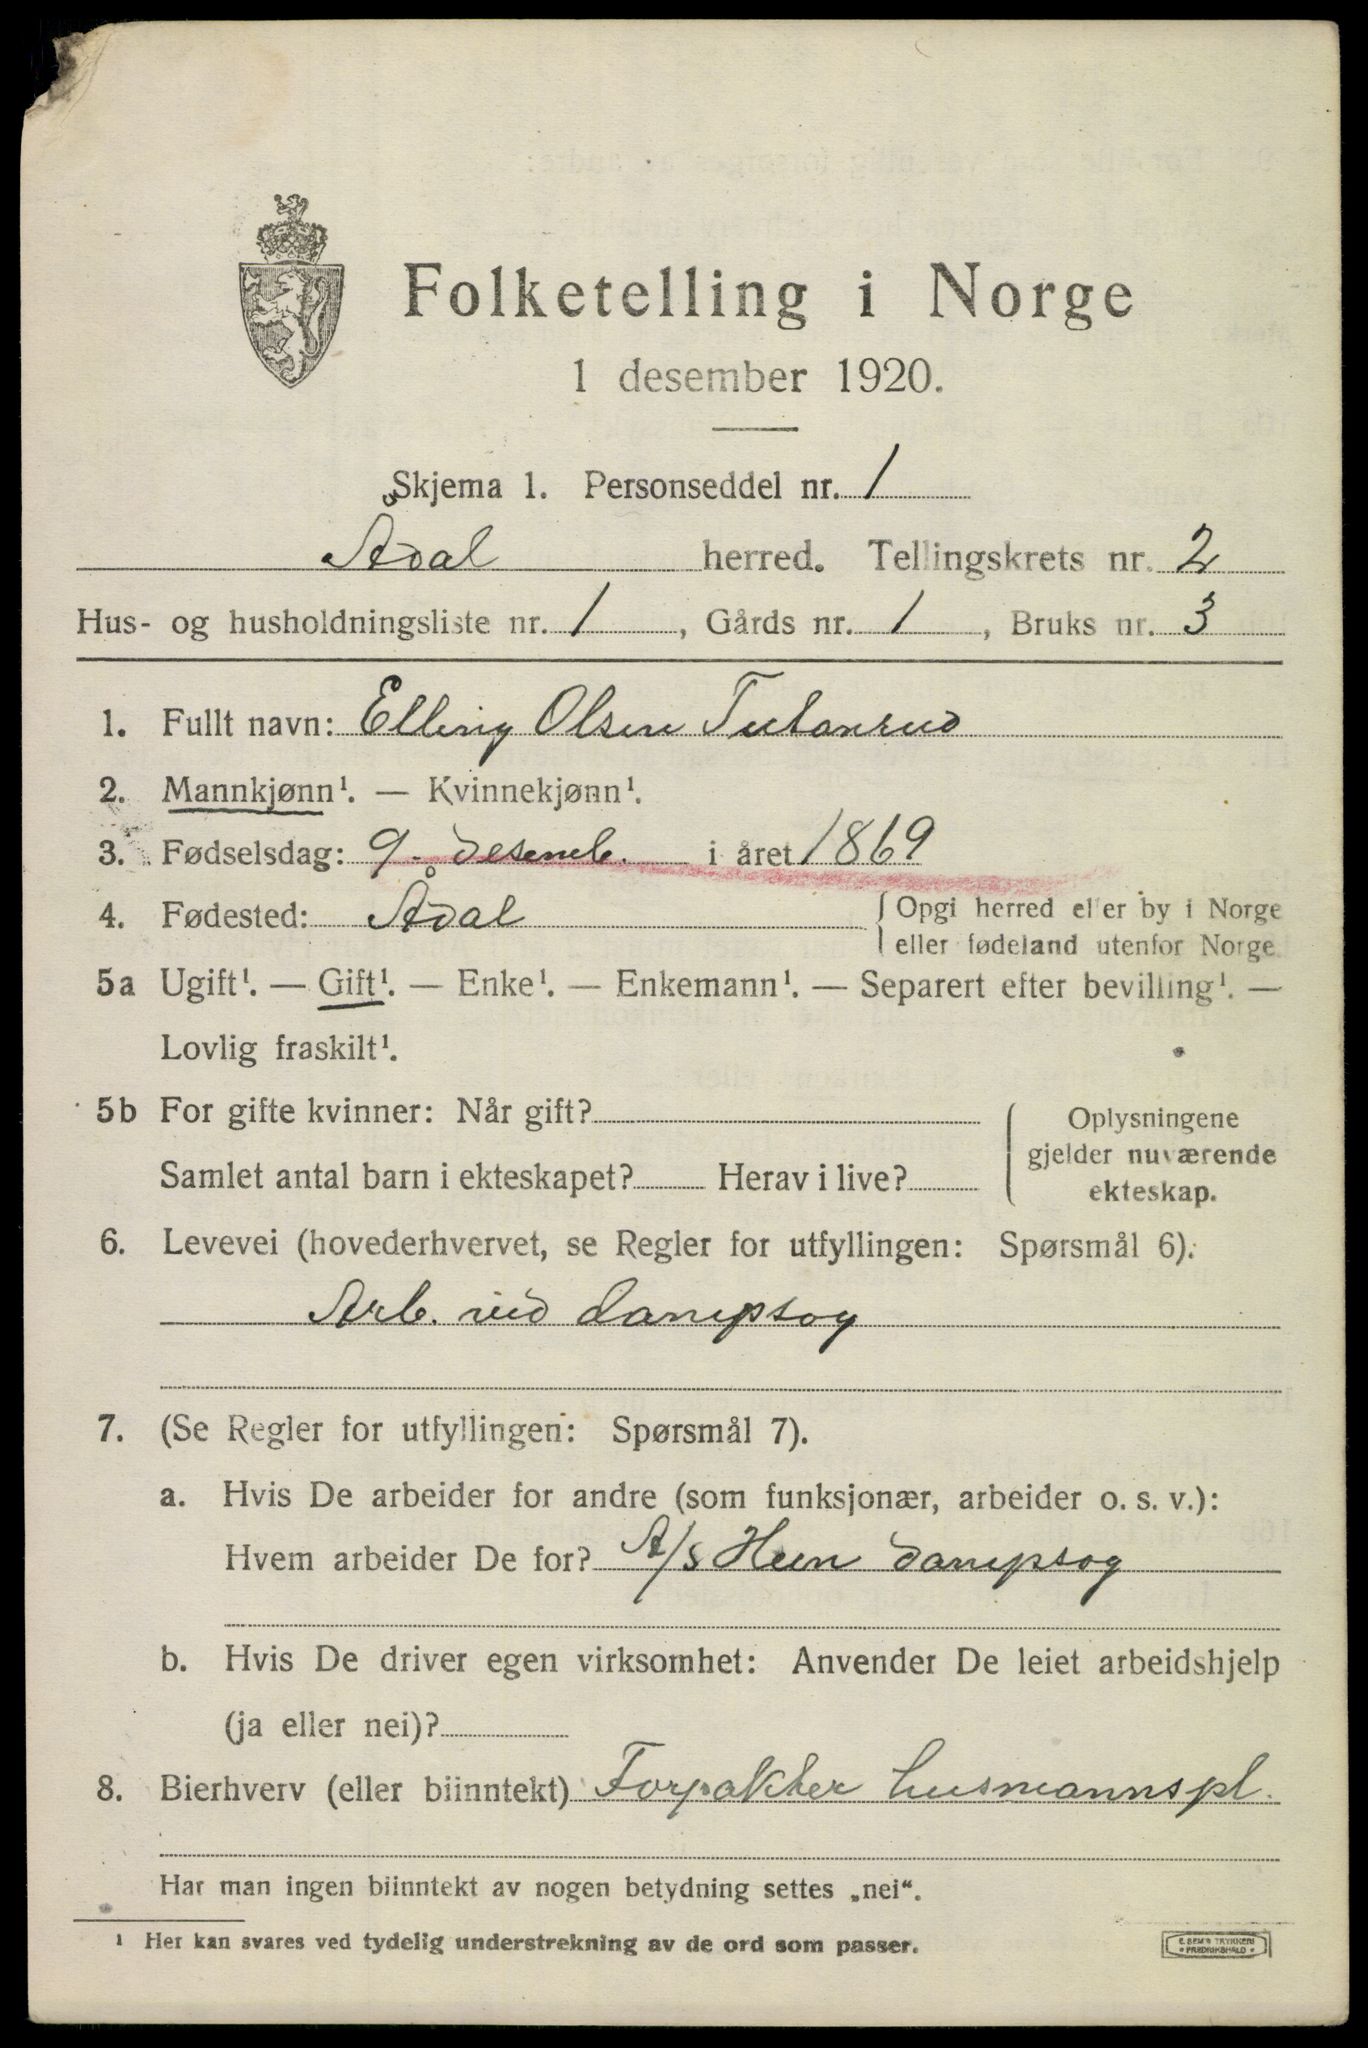 Folketelling i Norge
1 desember 1920.
Skjema 1. Personseddel nr. 1
Ådal herred. Tellingskrets nr. 2
Hus- og husholdningsliste nr. 1, Gårds nr. 1, Bruks nr. 3
1. Fullt navn: Elling Olsen
2. Mannkjønn¹. — Kvinnekjønn¹.
3. Fødselsdag: 9. desemb. i året 1869
4. Fødested: Ådal {Opgi herred eller by i Norge
eller fødeland utenfor Norge.
5a Ugift¹. — Gift¹. — Enke¹. — Enkemann¹. — Separert efter bevilling¹. —
Lovlig fraskilt¹.
5b For gifte kvinner: Når gift?
Samlet antal barn i ekteskapet? Herav i live?
Oplysningene
gjelder nuværende
ekteskap.
6. Levevei (hovederhvervet, se Regler for utfyllingen: Spørsmål 6).
Arb. ved dampsog
7. (Se Regler for utfyllingen: Spørsmål 7).
a. Hvis De arbeider for andre (som funksjonær, arbeider o. s. v.):
Hvem arbeider De for? A/s Hen dampsog
b. Hvis De driver egen virksomhet: Anvender De leiet arbeidshjelp
(ja eller nei)?
8. Bierhverv (eller biinntekt) Forpakter husmannspl.
Har man ingen biinntekt av nogen betydning settes „nei".
¹ Her kan svares ved tydelig understrekning av de ord som passer.
E. SEM'S TRYKKERI
FREDRIKSHALD